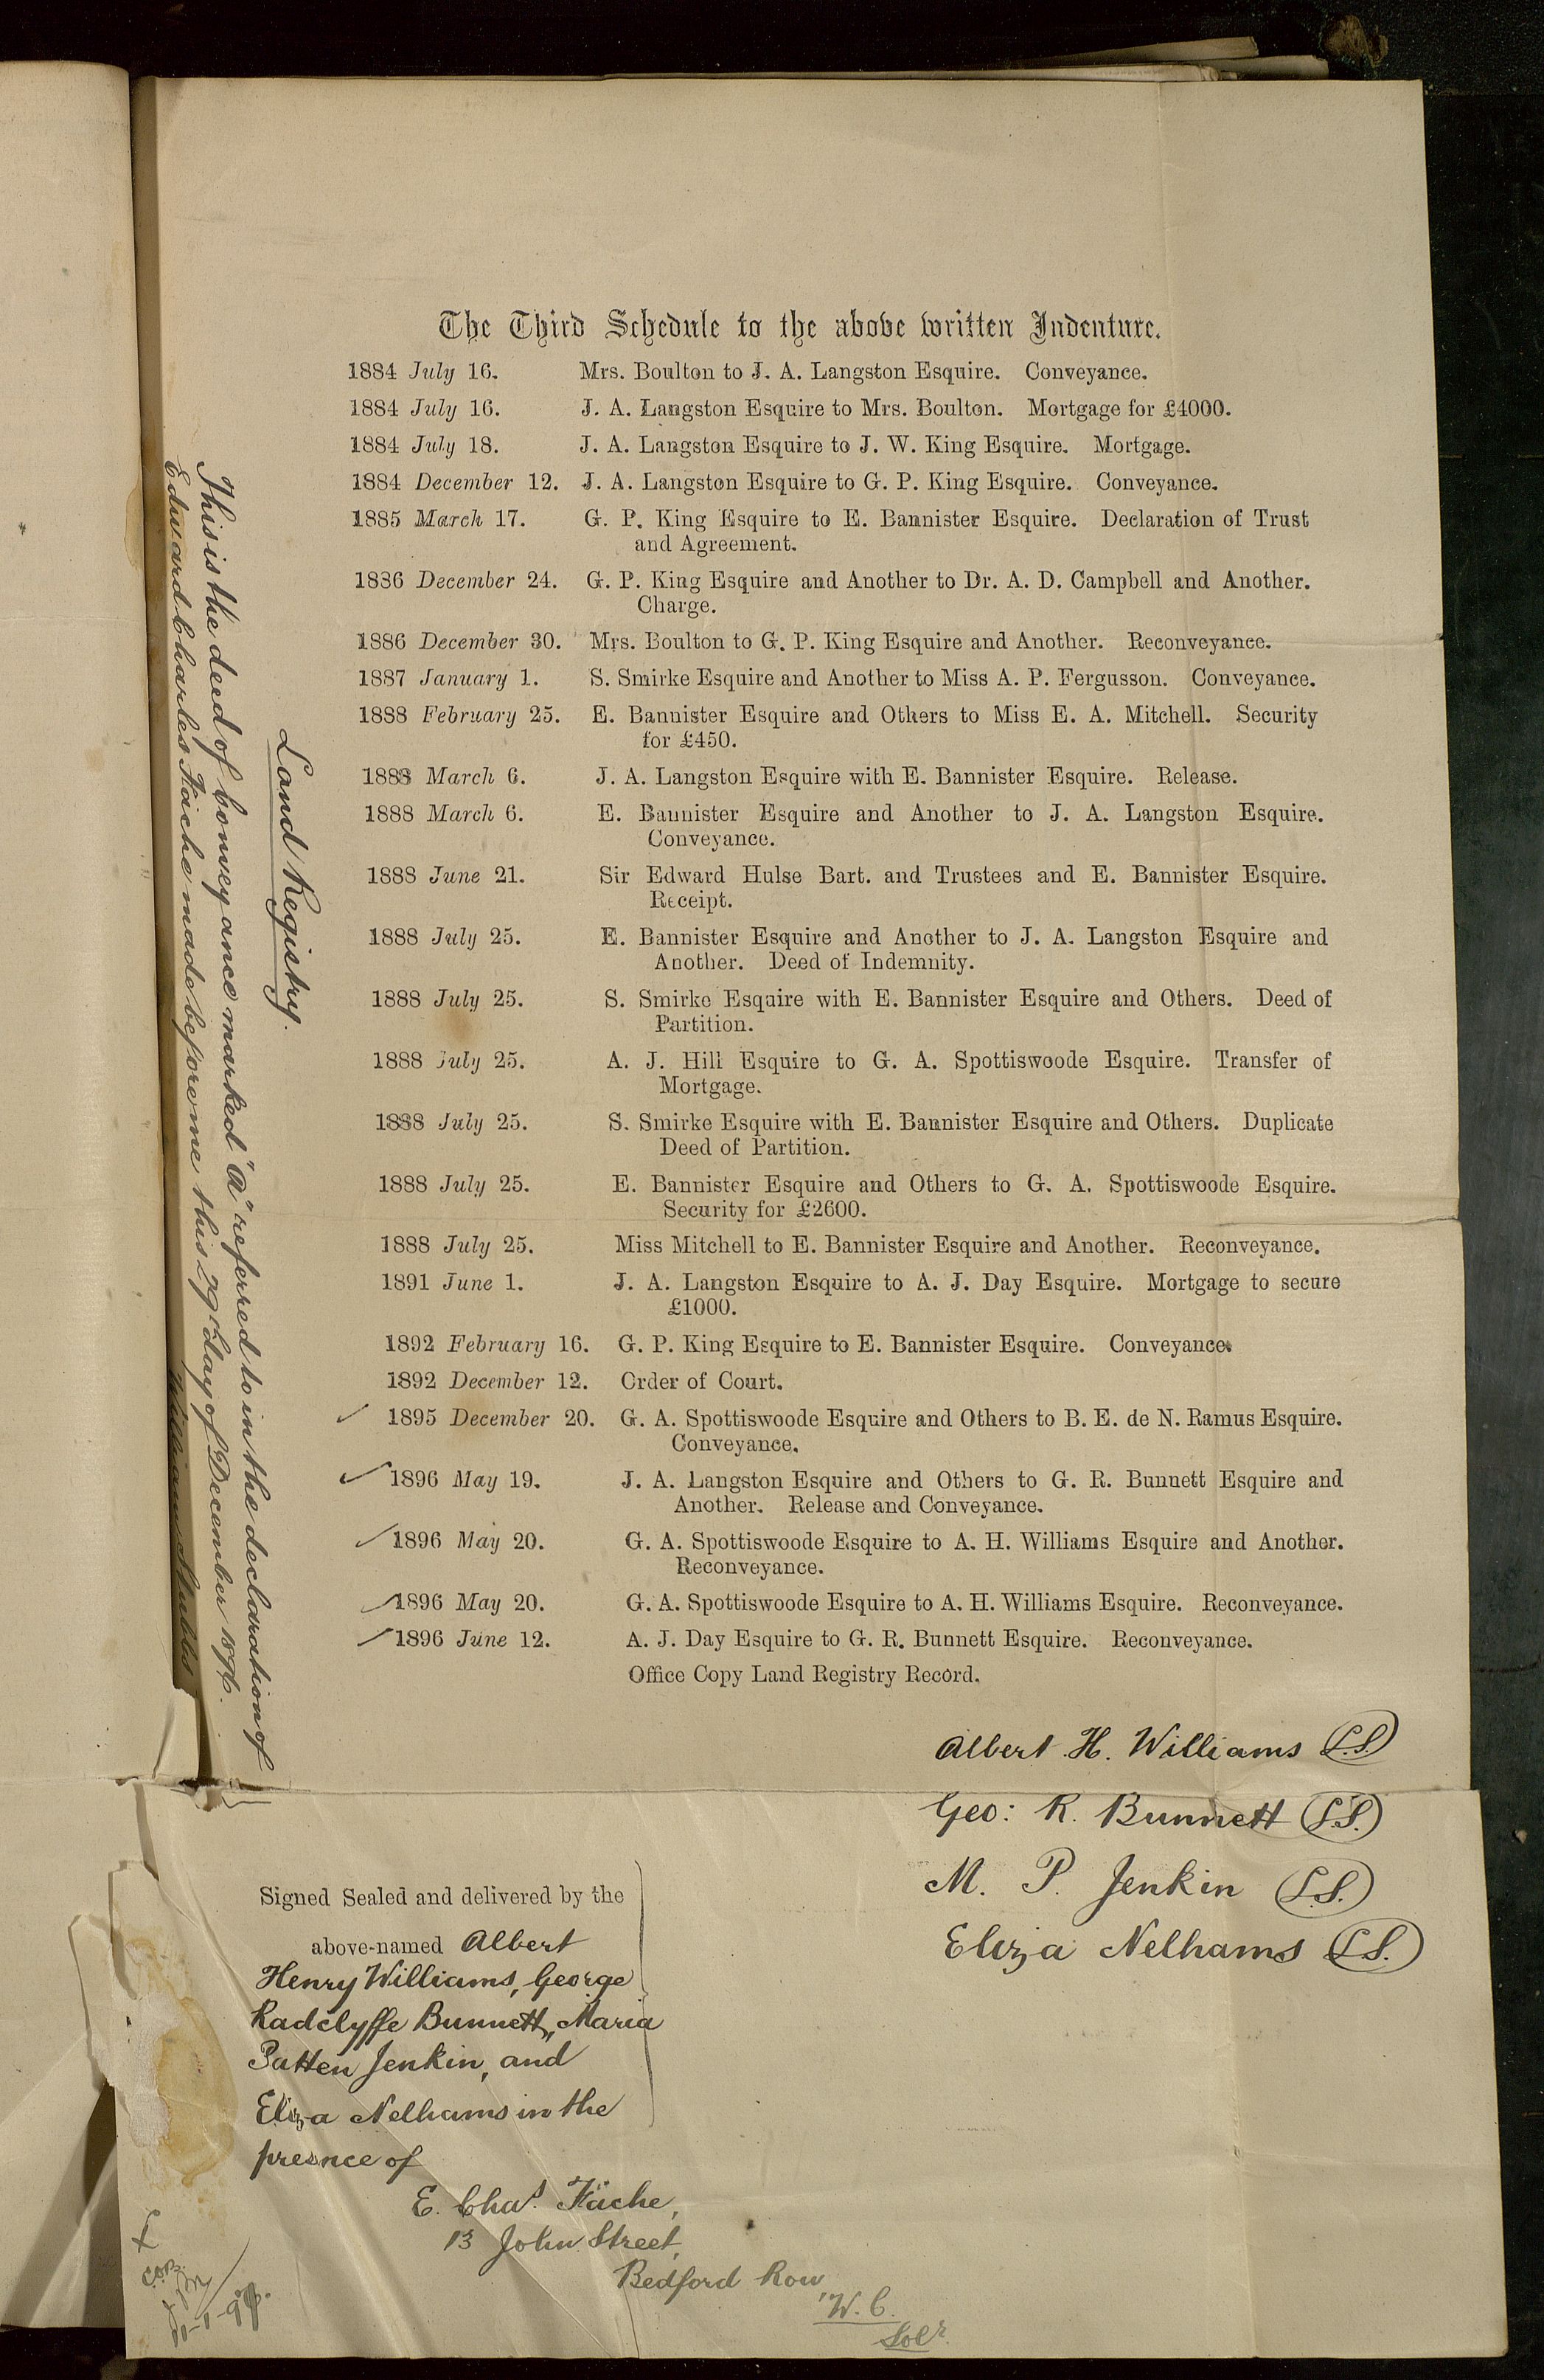 The Third Schedule to the above written Indenture.
1884 July 16. Mrs. Boulton to J. A. Langston Esquire. Conveyance.
1884 July 16. J. A. Langston Esquire to Mrs. Boulton. Mortgage for £4000.
1884 July 18. J. A. Langston Esquire to J. W. King Esquire. Mortgage.
1884 December 12. J. A. Langston Esquire to G. P. King Esquire. Conveyance.
1885 March 17. G. P. King Esquire to E. Bannister Esquire. Declaration of Trust
and Agreement.
1886 December 24. G. P. King Esquire and Another to Dr. A. D. Campbell and Another.
Charge.
1886 December 30. Mrs. Boulton to G. P. King Esquire and Another. Reconveyance.
1887 January 1. S. Smirke Esquire and Another to Miss A. P. Fergusson. Conveyance.
1888 February 25. E. Bannister Esquire and Others to Miss E. A. Mitchell. Security
for £450.
1888 March 6. J. A. Langston Esquire with E. Bannister Esquire. Release.
1888 March 6. E. Bannister Esquire and Another to J. A. Langston Esquire.
Conveyance.
1888 June 21. Sir Edward Hulse Bart. and Trustees and E. Bannister Esquire.
Receipt.
1888 July 25. E. Bannister Esquire and Another to J. A. Langston Esquire and
Another. Deed of Indemnity.
1888 July 25. S. Smirke Esquire with E. Bannister Esquire and Others. Deed of
Partition.
1888 July 25. A. J. Hill Esquire to G. A. Spottiswoode Esquire. Transfer of
Mortgage.
1888 July 25. S. Smirke Esquire with E. Bannister Esquire and Others. Duplicate
Deed of Partition.
1888 July 25. E. Bannister Esquire and Others to G. A. Spottiswoode Esquire.
Security for £2600.
1888 July 25. Miss Mitchell to E. Bannister Esquire and Another. Reconveyance.
1891 June 1. J. A. Langston Esquire to A. J. Day Esquire. Mortgage to secure
£1000.
1892 February 16. G. P. King Esquire to E. Bannister Esquire. Conveyance.
1892 December 12. Order of Court.
✓ 1895 December 20. G. A. Spottiswoode Esquire and Others to B. E. de N. Ramus Esquire.
Conveyance.
✓ 1896 May 19. J. A. Langston Esquire and Others to G. R. Bunnett Esquire and
Another. Release and Conveyance.
✓ 1896 May 20. G. A. Spottiswoode Esquire to A. H. Williams Esquire and Another.
Reconveyance.
✓ 1896 May 20. G. A. Spottiswoode Esquire to A. H. Williams Esquire. Reconveyance.
✓ 1896 June 12. A. J. Day Esquire to G. R. Bunnett Esquire. Reconveyance.
Office Copy Land Registry Record.
Land Registry.
This is the deed of Conveyance marked "A" referred to in the declaration of
Edward Charles Fäche made before me this 29th day of December 1896.
William Stubbs
Albert H. Williams L.S.
Geo: R. Bunnett L.S.
M. P. Jenkin L.S.
Eliza Nelhams L.S.
Signed Sealed and delivered by the
above-named Albert
Henry Williams, George
Radclyffe Bunnett, Maria
Patten Jenkin, and
Eliza Nelhams in the
presnce of
E. Chas. Fäche,
13 John Street,
Bedford Row,
W.C.
Solr.